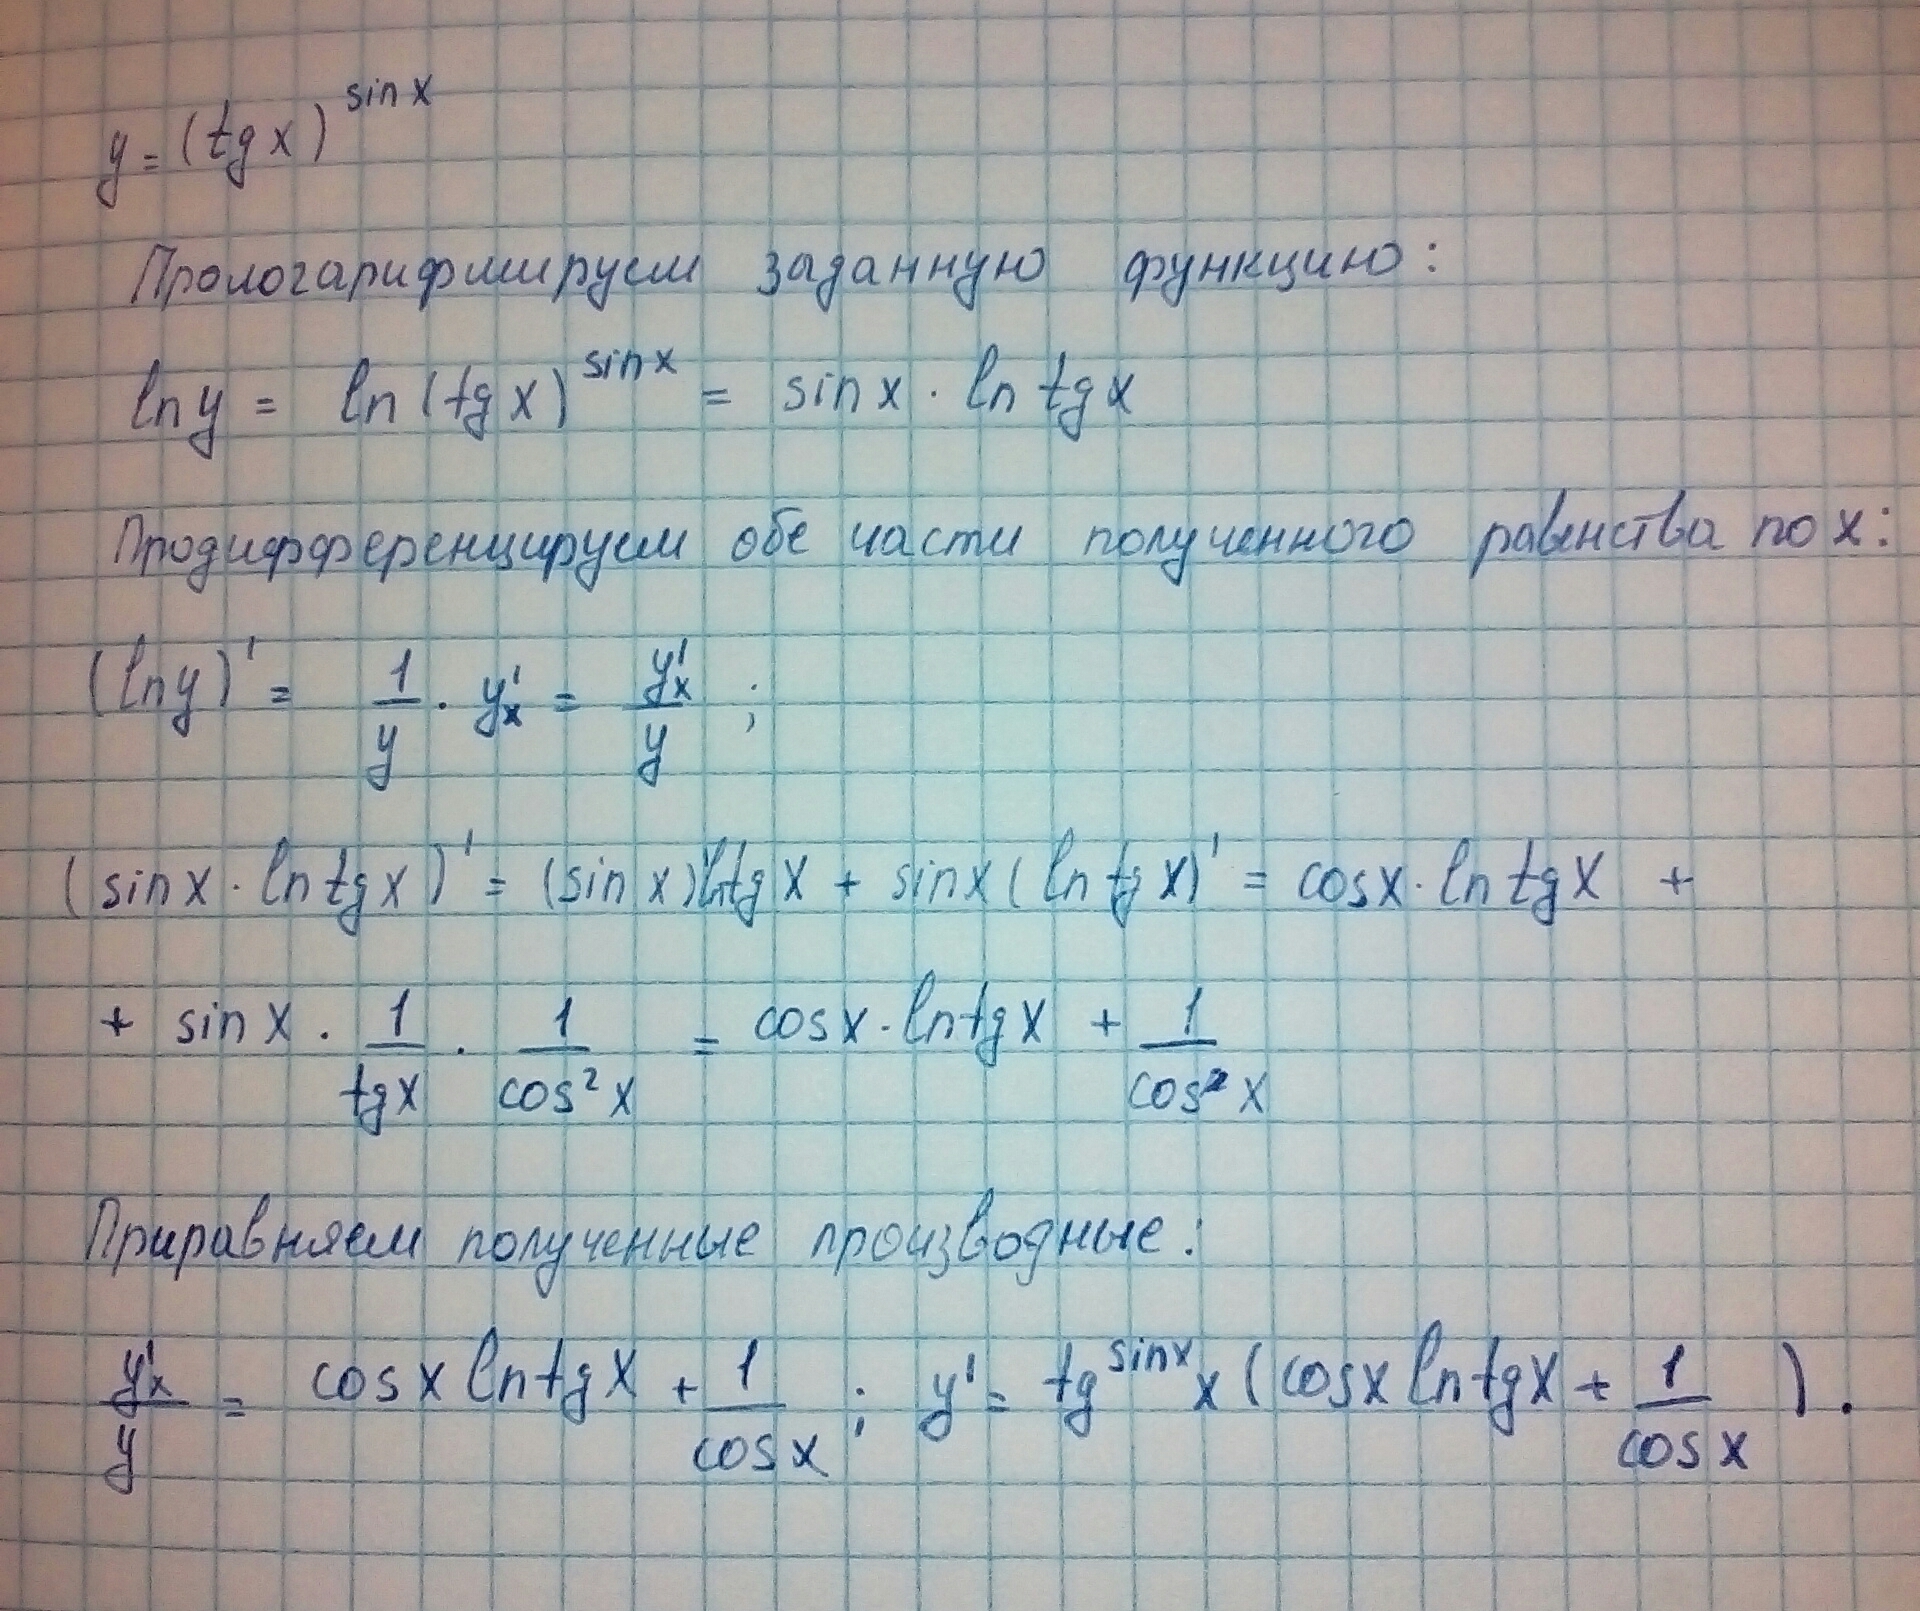 y = (tg x)^{sin x}
Прологарифмируем заданную функцию:
ln y = ln (tg x)^{sin x} = sin x · ln tg x
Продифференцируем обе части полученного равенства по x:
(ln y)' = \frac{1}{y} · y'_x = \frac{y'_x}{y} ;
(sin x · ln tg x)' = (sin x)' ln tg x + sin x (ln tg x)' = cos x · ln tg x +
+ sin x · \frac{1}{tg x} · \frac{1}{cos^2 x} = cos x · ln tg x + \frac{1}{cos^2 x}
Приравняем полученные производные:
\frac{y'_x}{y} = cos x ln tg x + \frac{1}{cos x} ; y' = tg^{sin x} x (cos x ln tg x + \frac{1}{cos x}) .